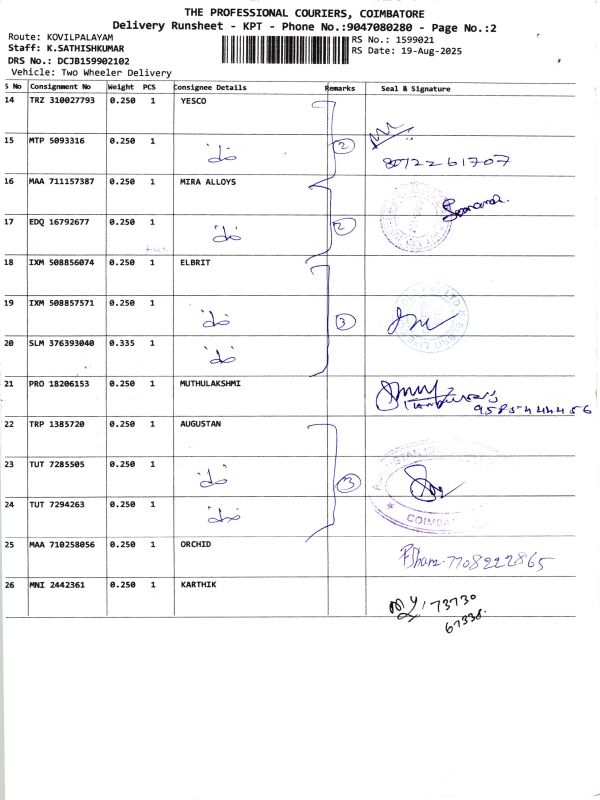 THE PROFESSIONAL COURIERS, COIMBATORE
Delivery Runsheet - KPT - Phone No.:9047080280 - Page No.:2
Route: KOVILPALAYAM
RS No.: 1599021
Staff: K.SATHISHKUMAR
RS Date: 19-Aug-2025
DRS No.: DCJB159902102
Vehicle: Two Wheeler Delivery
S No Consignment No Weight PCS Consignee Details Remarks Seal & Signature
14 TRZ 310027793 0.250 1 YESCO
15 MTP 5093316 0.250 1 2
16 MAA 711157387 0.250 1 MIRA ALLOYS
17 EDQ 16792677 0.250 1 2
18 IXM 508856074 0.250 1 ELBRIT
19 IXM 508857571 0.250 1 3
20 SLM 376393040 0.335 1
21 PRO 18206153 0.250 1 MUTHULAKSHMI
22 TRP 1385720 0.250 1 AUGUSTAN
23 TUT 7285505 0.250 1 3
24 TUT 7294263 0.250 1
COIMBA
25 MAA 710258056 0.250 1 ORCHID
7708222865
26 MNI 2442361 0.250 1 KARTHIK
73730
67338